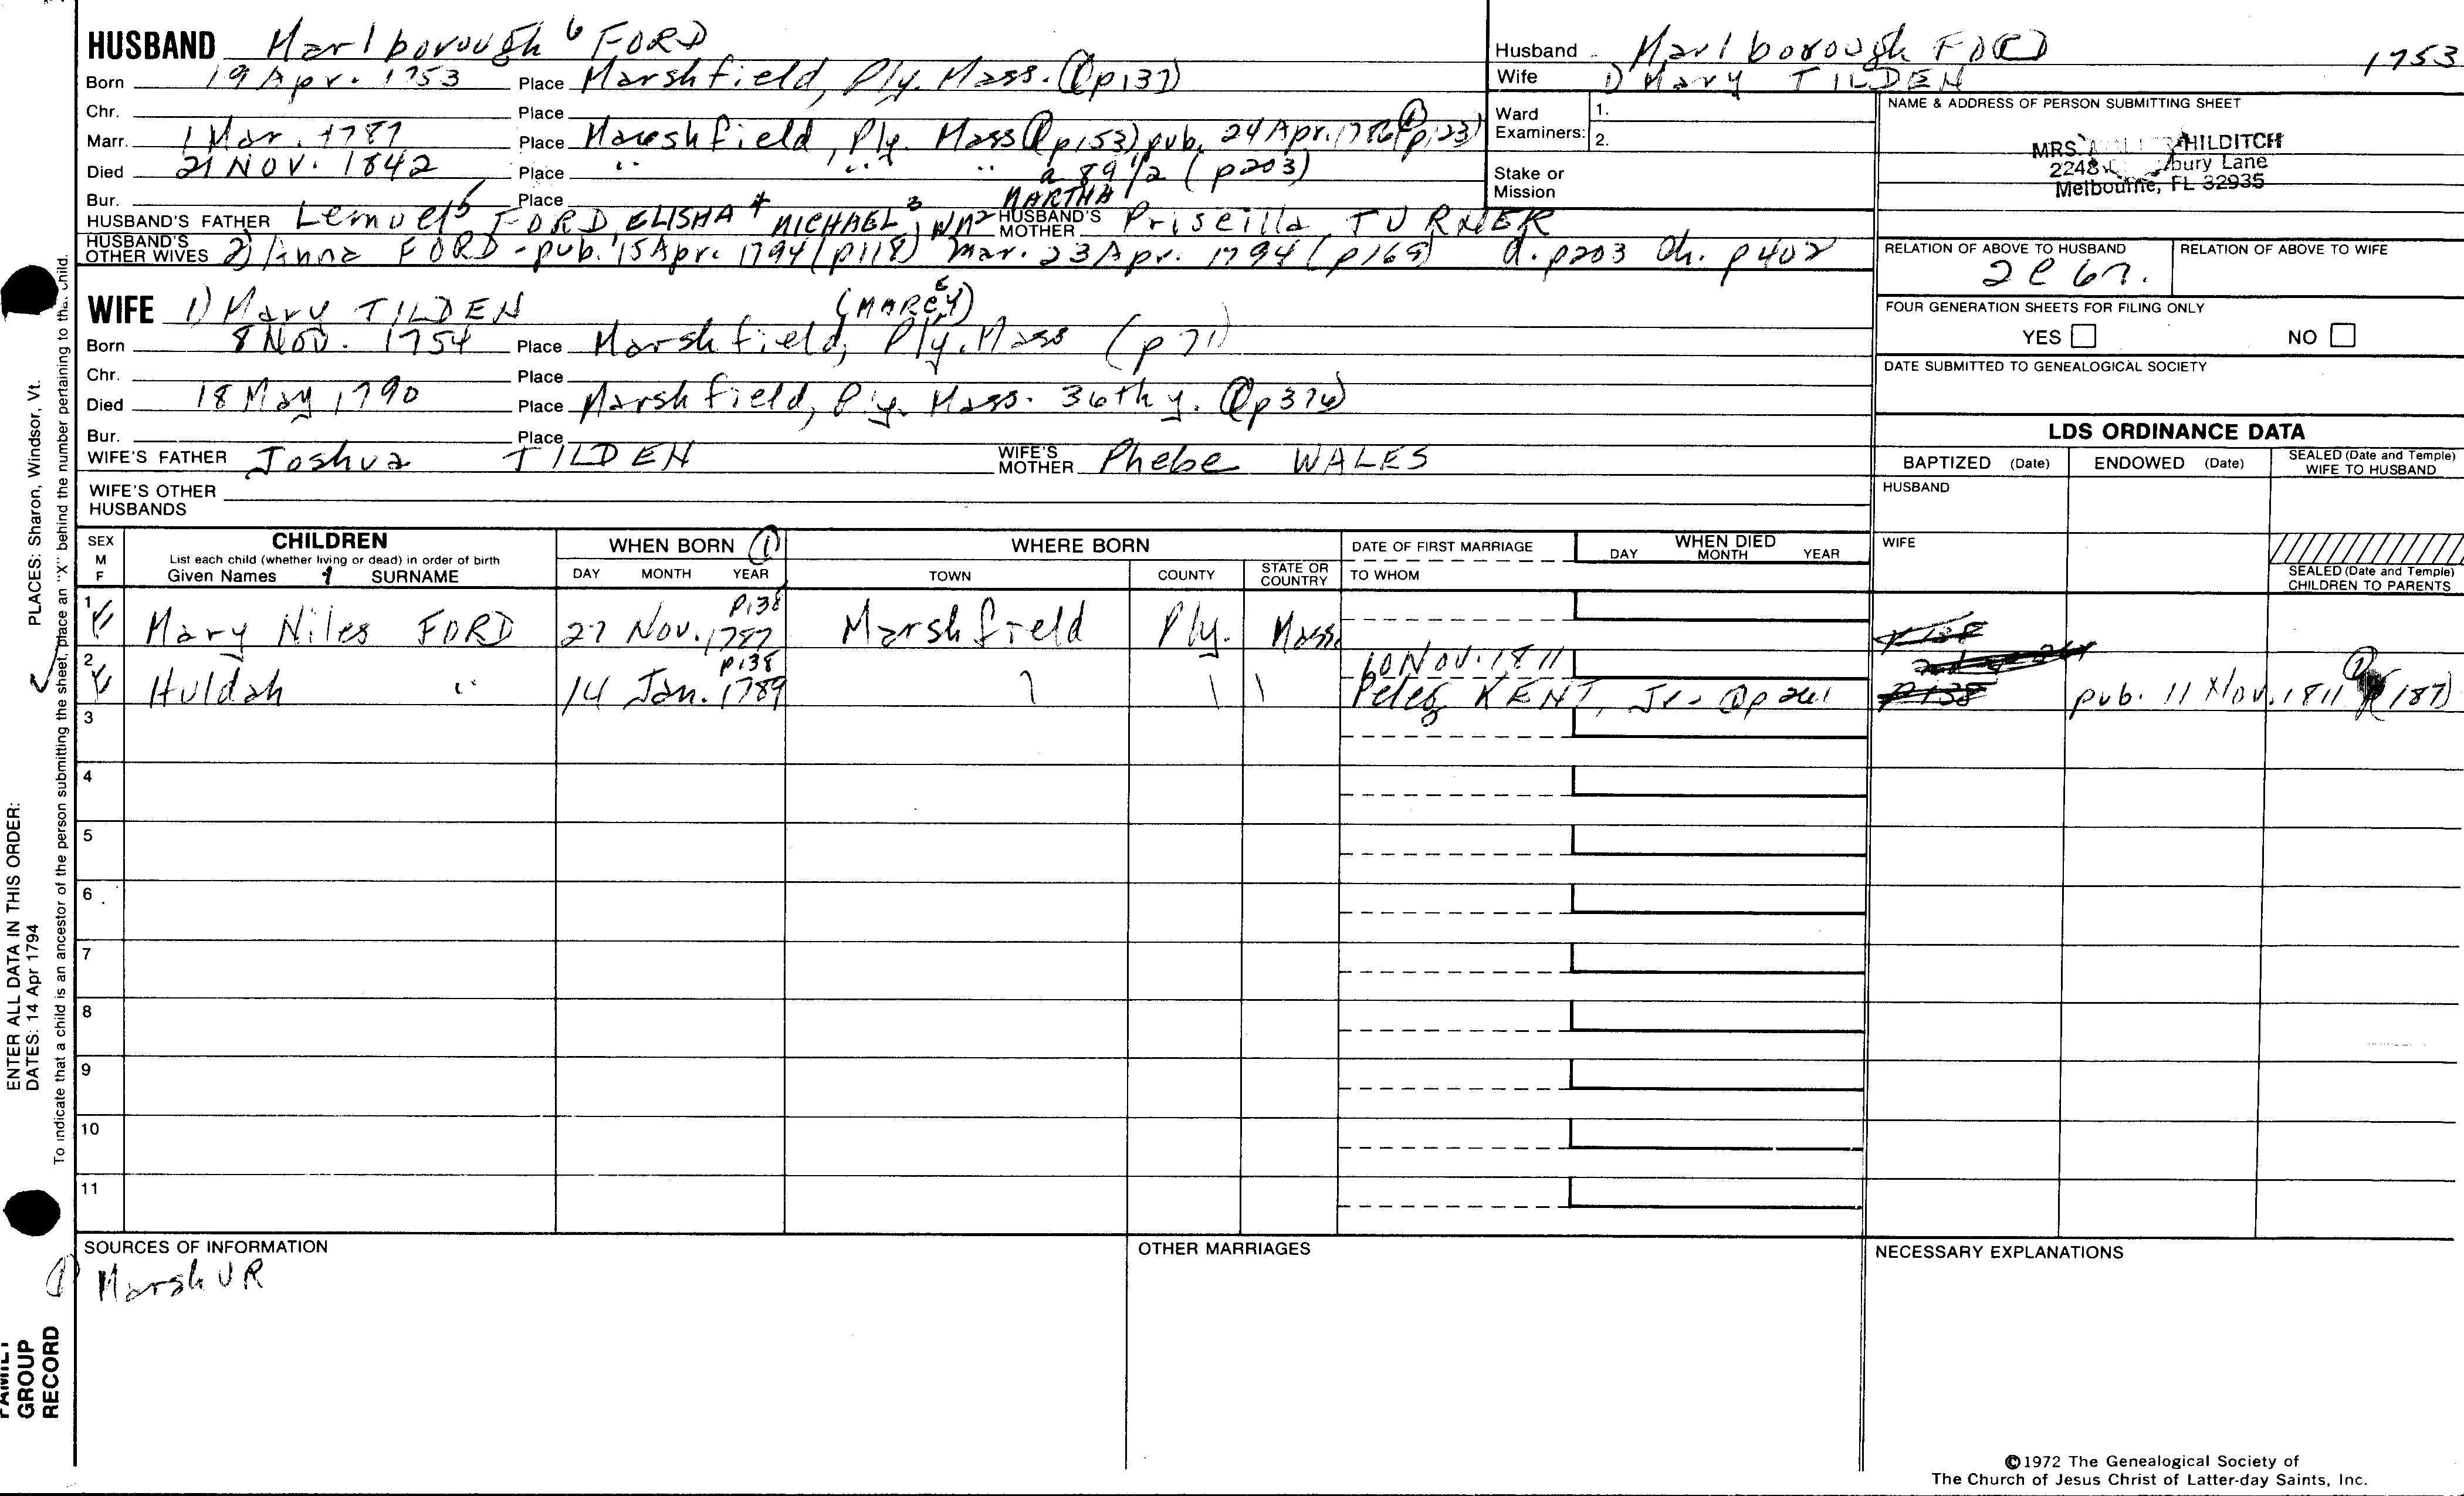 HUSBAND Marlborough 6 FORD
Born 19 Apr. 1753 Place Marshfield, Ply. Mass. (1p137)
Chr. Place
Marr. 1 Mar. 1787 Place Marshfield, Ply. Mass (1p153) pub. 24 Apr. 1786 (1p123)
Died 21 NOV. 1842 Place " " " a 89 1/2 (p203)
Bur. Place MARTHA
HUSBAND'S FATHER Lemuel 5 FORD ELISHA 4 MICHAEL 3, WM 2 HUSBAND'S MOTHER Priscilla TURNER
HUSBAND'S OTHER WIVES 2) Anna FORD - pub. 15 Apr. 1794 (p118) mar. 23 Apr. 1794 (p169) d. p203 Ch. p402
WIFE 1) Mary TILDEN (MAREY) E
Born 8 Nov. 1754 Place Marshfield, Ply. Mass (p71)
Chr. Place
Died 18 May 1790 Place Marshfield, Ply. Mass. 36th y. (1p376)
Bur. Place
WIFE'S FATHER Joshua TILDEN WIFE'S MOTHER Phebe WALES
WIFE'S OTHER HUSBANDS
Husband Marlborough FORD 1753
Wife 1) Mary TILDEN
Ward 1.
Examiners: 2.
Stake or Mission
NAME & ADDRESS OF PERSON SUBMITTING SHEET
MRS. HILDITCH
2248 bury Lane
Melbourne, FL 32935
RELATION OF ABOVE TO HUSBAND RELATION OF ABOVE TO WIFE
2C 6r.
FOUR GENERATION SHEETS FOR FILING ONLY
YES NO
DATE SUBMITTED TO GENEALOGICAL SOCIETY
LDS ORDINANCE DATA
BAPTIZED (Date) ENDOWED (Date) SEALED (Date and Temple) WIFE TO HUSBAND
HUSBAND
WIFE
SEALED (Date and Temple) CHILDREN TO PARENTS
SEX M F
CHILDREN
List each child (whether living or dead) in order of birth
Given Names SURNAME
WHEN BORN (1)
DAY MONTH YEAR
WHERE BORN
TOWN COUNTY STATE OR COUNTRY
DATE OF FIRST MARRIAGE
TO WHOM
WHEN DIED
DAY MONTH YEAR
1 F Mary Niles FORD 27 Nov. 1787 p138 Marshfield Ply. Mass. p138
2 F Huldah " 14 Jan. 1789 p138 10 Nov. 1811
Peleg KENT, Jr - (1)p261 p138 pub. 11 Nov. 1811 (1) p(187)
3
4
5
6
7
8
9
10
11
SOURCES OF INFORMATION
(1) Marsh VR
OTHER MARRIAGES
NECESSARY EXPLANATIONS
©1972 The Genealogical Society of
The Church of Jesus Christ of Latter-day Saints, Inc.
PLACES: Sharon, Windsor, Vt.
To indicate that a child is an ancestor of the person submitting the sheet, place an "X" behind the number pertaining to that child.
ENTER ALL DATA IN THIS ORDER:
DATES: 14 Apr 1794
FAMILY
GROUP
RECORD